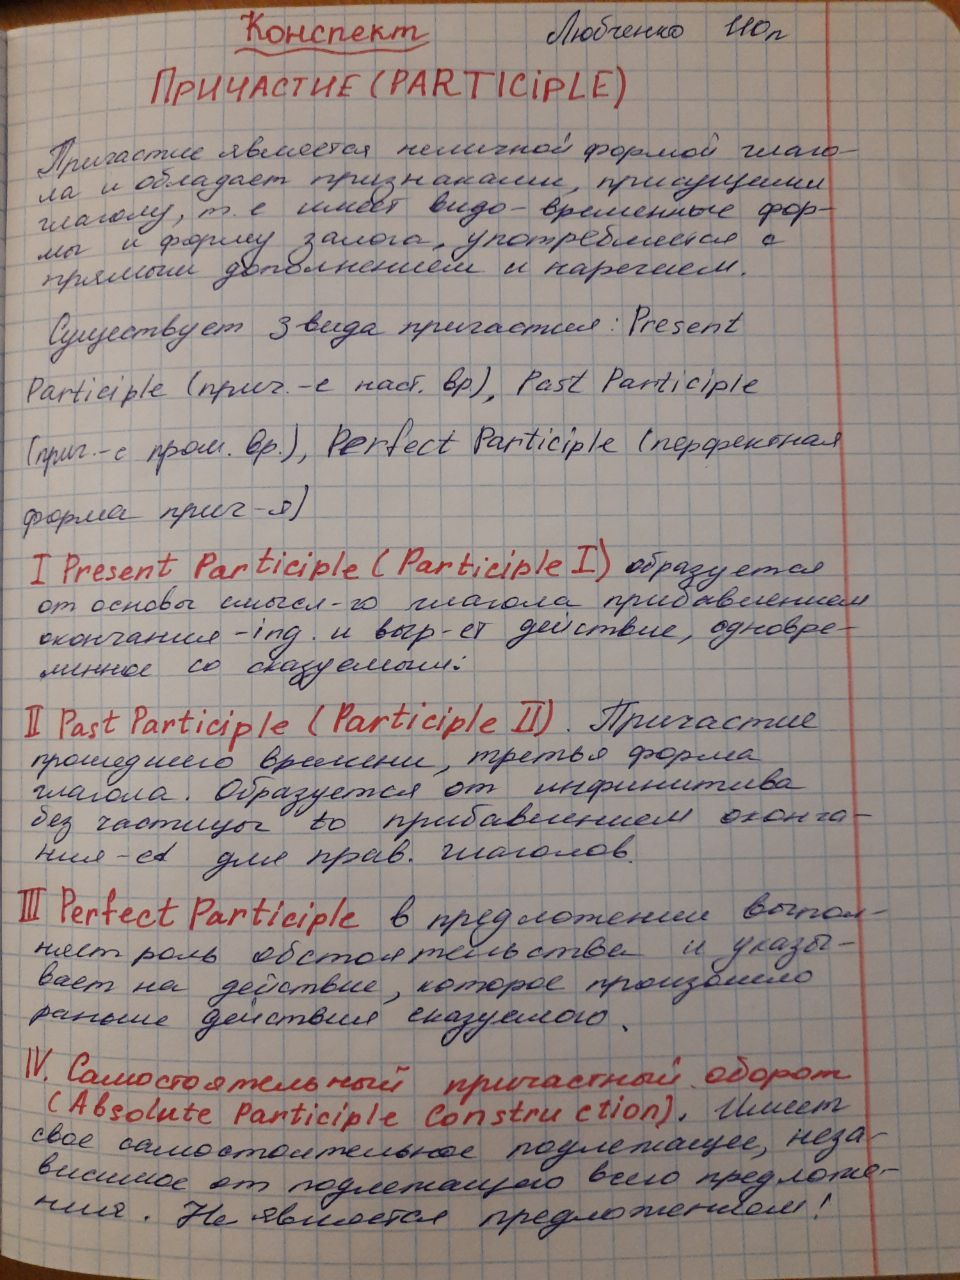 Конспект Любченко 110л
ПРИЧАСТИЕ (PARTICIPLE)
Причастие является неличной формой глаго-
ла и обладает признаками, присущими
глаголу, т.е имеет видо-временные фор-
мы и форму залога, употребляется с
прямым дополнением и наречием.
Существует 3 вида причастия: Present
Participle (прич.-е наст. вр), Past Participle
(прич.-е прош. вр.), Perfect Participle (перфектная
форма прич-я)
I Present Participle (Participle I) образуется
от основы смысл-го глагола прибавлением
окончания -ing. и выр-ет действие, одновре-
менное со сказуемым.
II Past Participle (Participle II). Причастие
прошедшего времени, третья форма
глагола. Образуется от инфинитива
без частицы to прибавлением оконча-
ния -ed для прав. глаголов.
III Perfect Participle в предложении выпол-
няет роль обстоятельства и указы-
вает на действие, которое произошло
раньше действия сказуемого.
IV. Самостоятельный причастный оборот
(Absolute Participle Construction). Имеет
свое самостоятельное подлежащее, неза-
висимое от подлежащего всего предложе-
ния. Не является предложением!